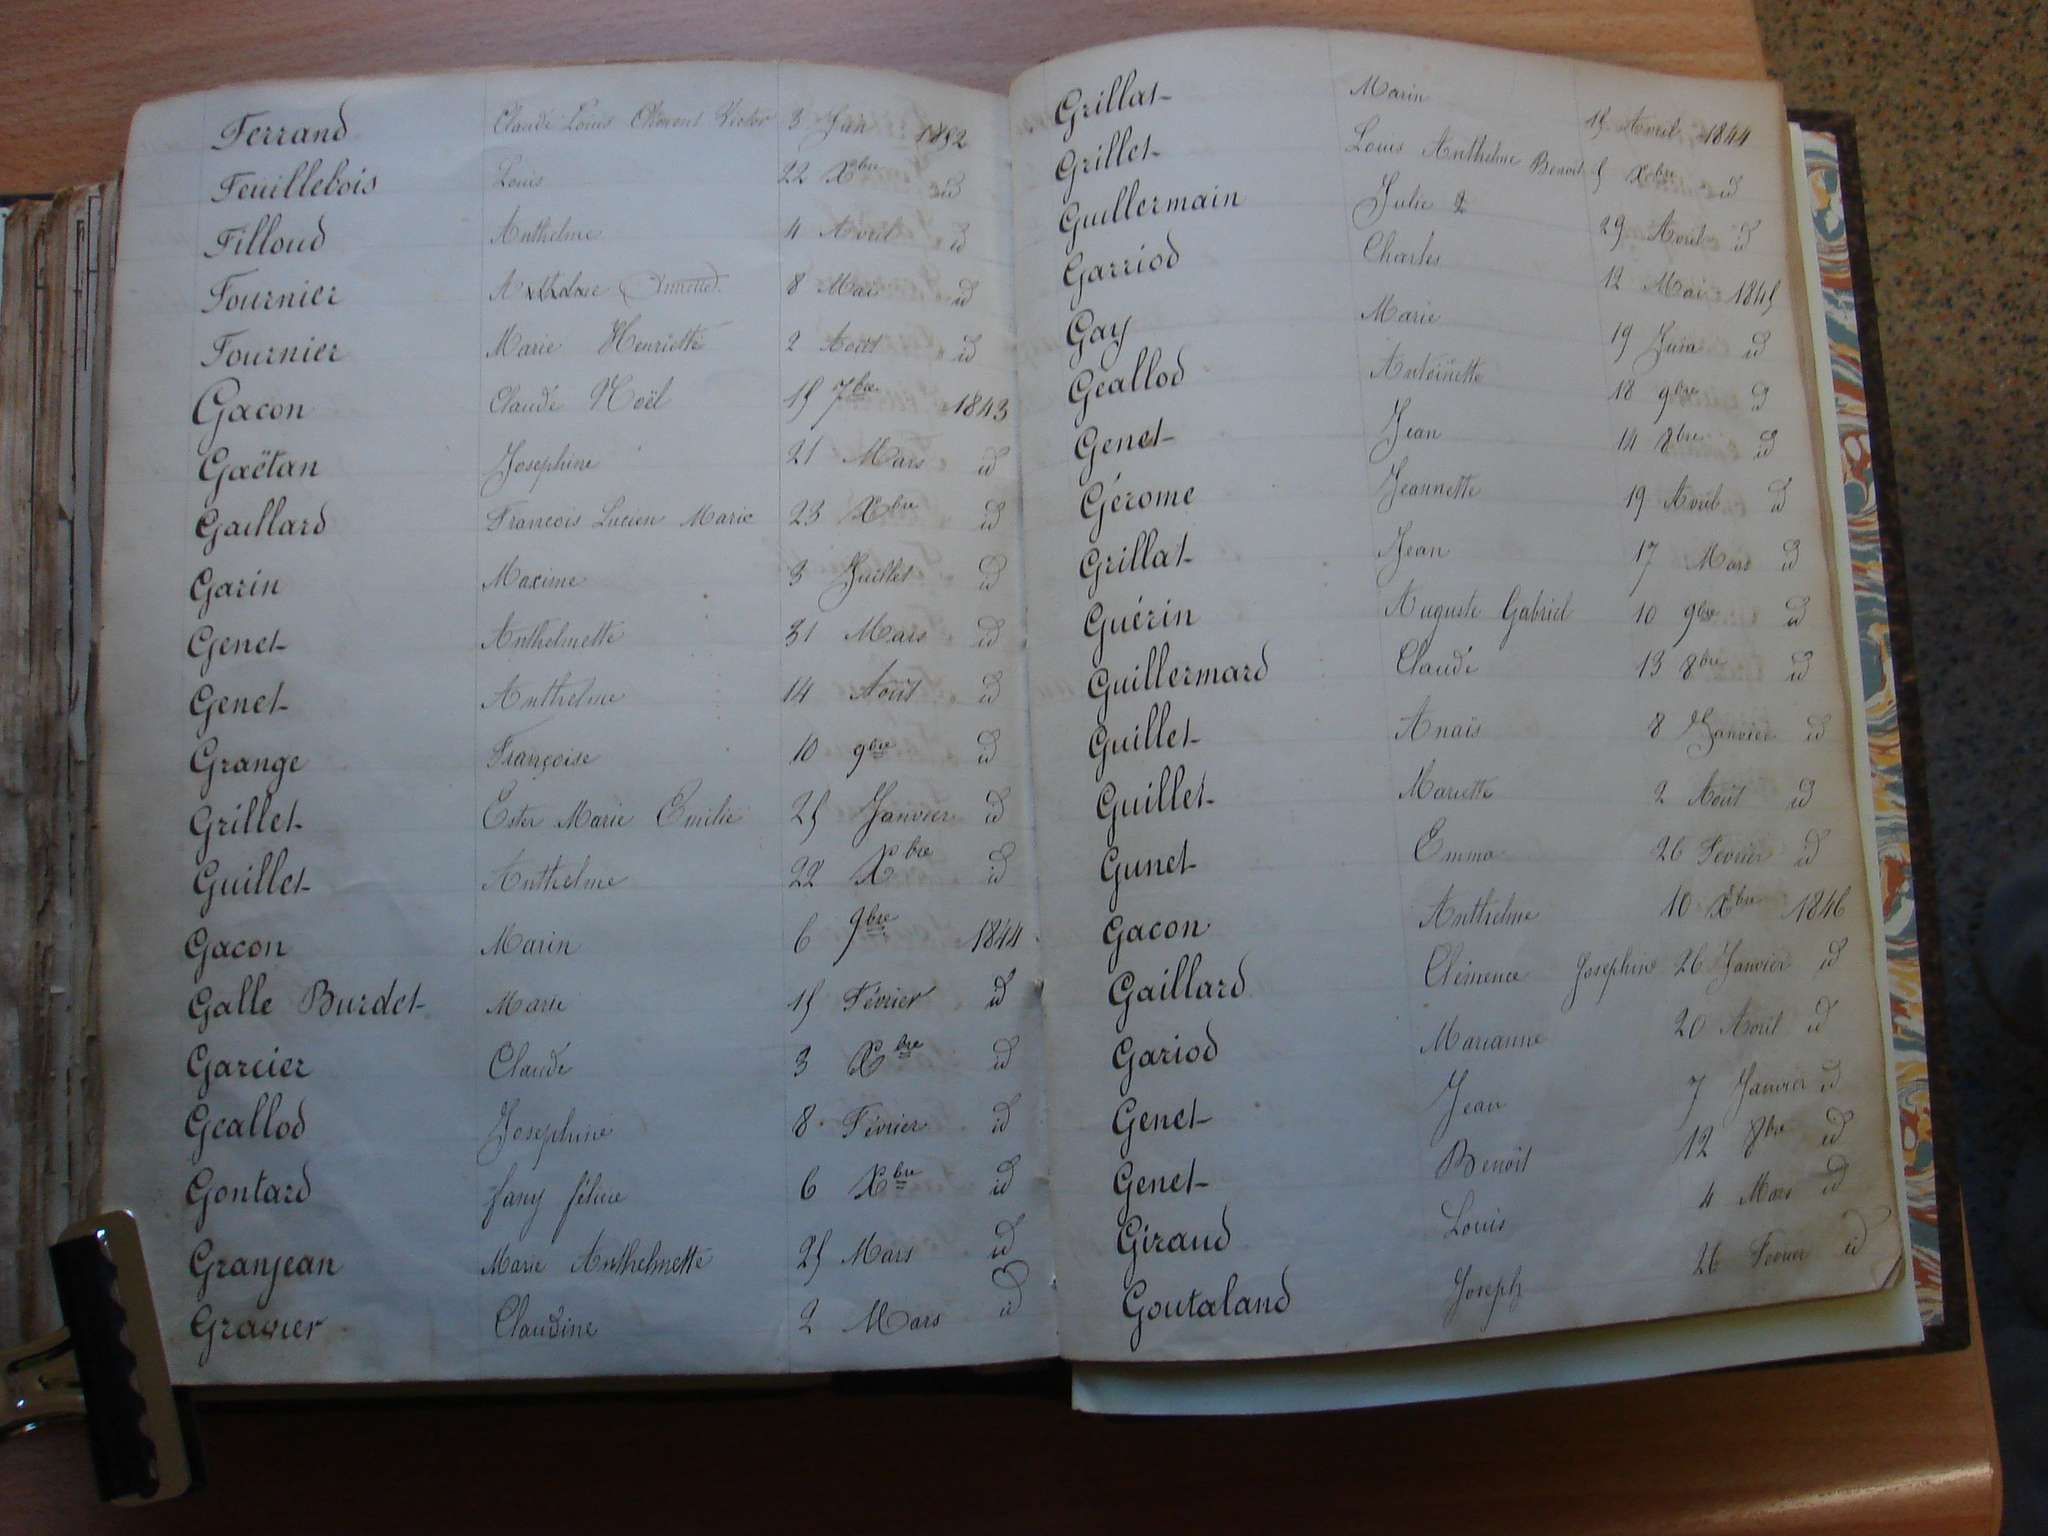 Ferrand Claude Louis Victor 3 Jan 1852
Feuillebois Louis 22 Xbre id
Filloud Anthelme 4 Avril id
Fournier 8 Mai id
Fournier Marie Henriette 2 Août id
Gacon Claude Noël 15 7bre 1843
Gaëtan Josephine 21 Mars id
Gaillard Francois Lucien Marie 23 Xbre id
Garin Maxime 3 Juillet id
Genet Anthelmette 31 Mars id
Genet Anthelme 14 Août id
Grange Françoise 10 9bre id
Grillet Ester Marie Emilie 25 Janvier id
Guillet Anthelme 22 Xbre id
Gacon Marin 6 9bre 1844
Galle Burdet Marie 15 Février id
Garcier Claude 3 Xbre id
Geallod Josephine 8 Février id
Gontard fany 6 Xbre id
Granjean Marie Anthelmette 25 Mars id
Gravier Claudine 2 Mars id
Grillat Marin 15 Avril 1844
Grillet Louis Anthelme Benoit 5 Xbre id
Guillermain Julie 29 Avril id
Garriod Charles 12 Mai 1845
Gay Marie 19 Juin id
Geallod Antoinette 18 9bre id
Genet Jean 14 8bre id
Gérome Jeannette 19 Avril id
Grillat Jean 17 Mars id
Guérin Auguste Gabriel 10 9bre id
Guillermard Claude 13 8bre id
Guillet Anaïs 8 Janvier id
Guillet Mariette 2 Août id
Gunet Emma 26 Fevrier id
Gacon Anthelme 10 Xbre 1846
Gaillard Clémence Josephine 26 Janvier id
Gariod Marianne 20 Avril id
Genet Jean 7 Janvier id
Genet Benoit 12 8bre id
Giraud Louis 4 Mars id
Goutaland Joseph 26 Fevrier id